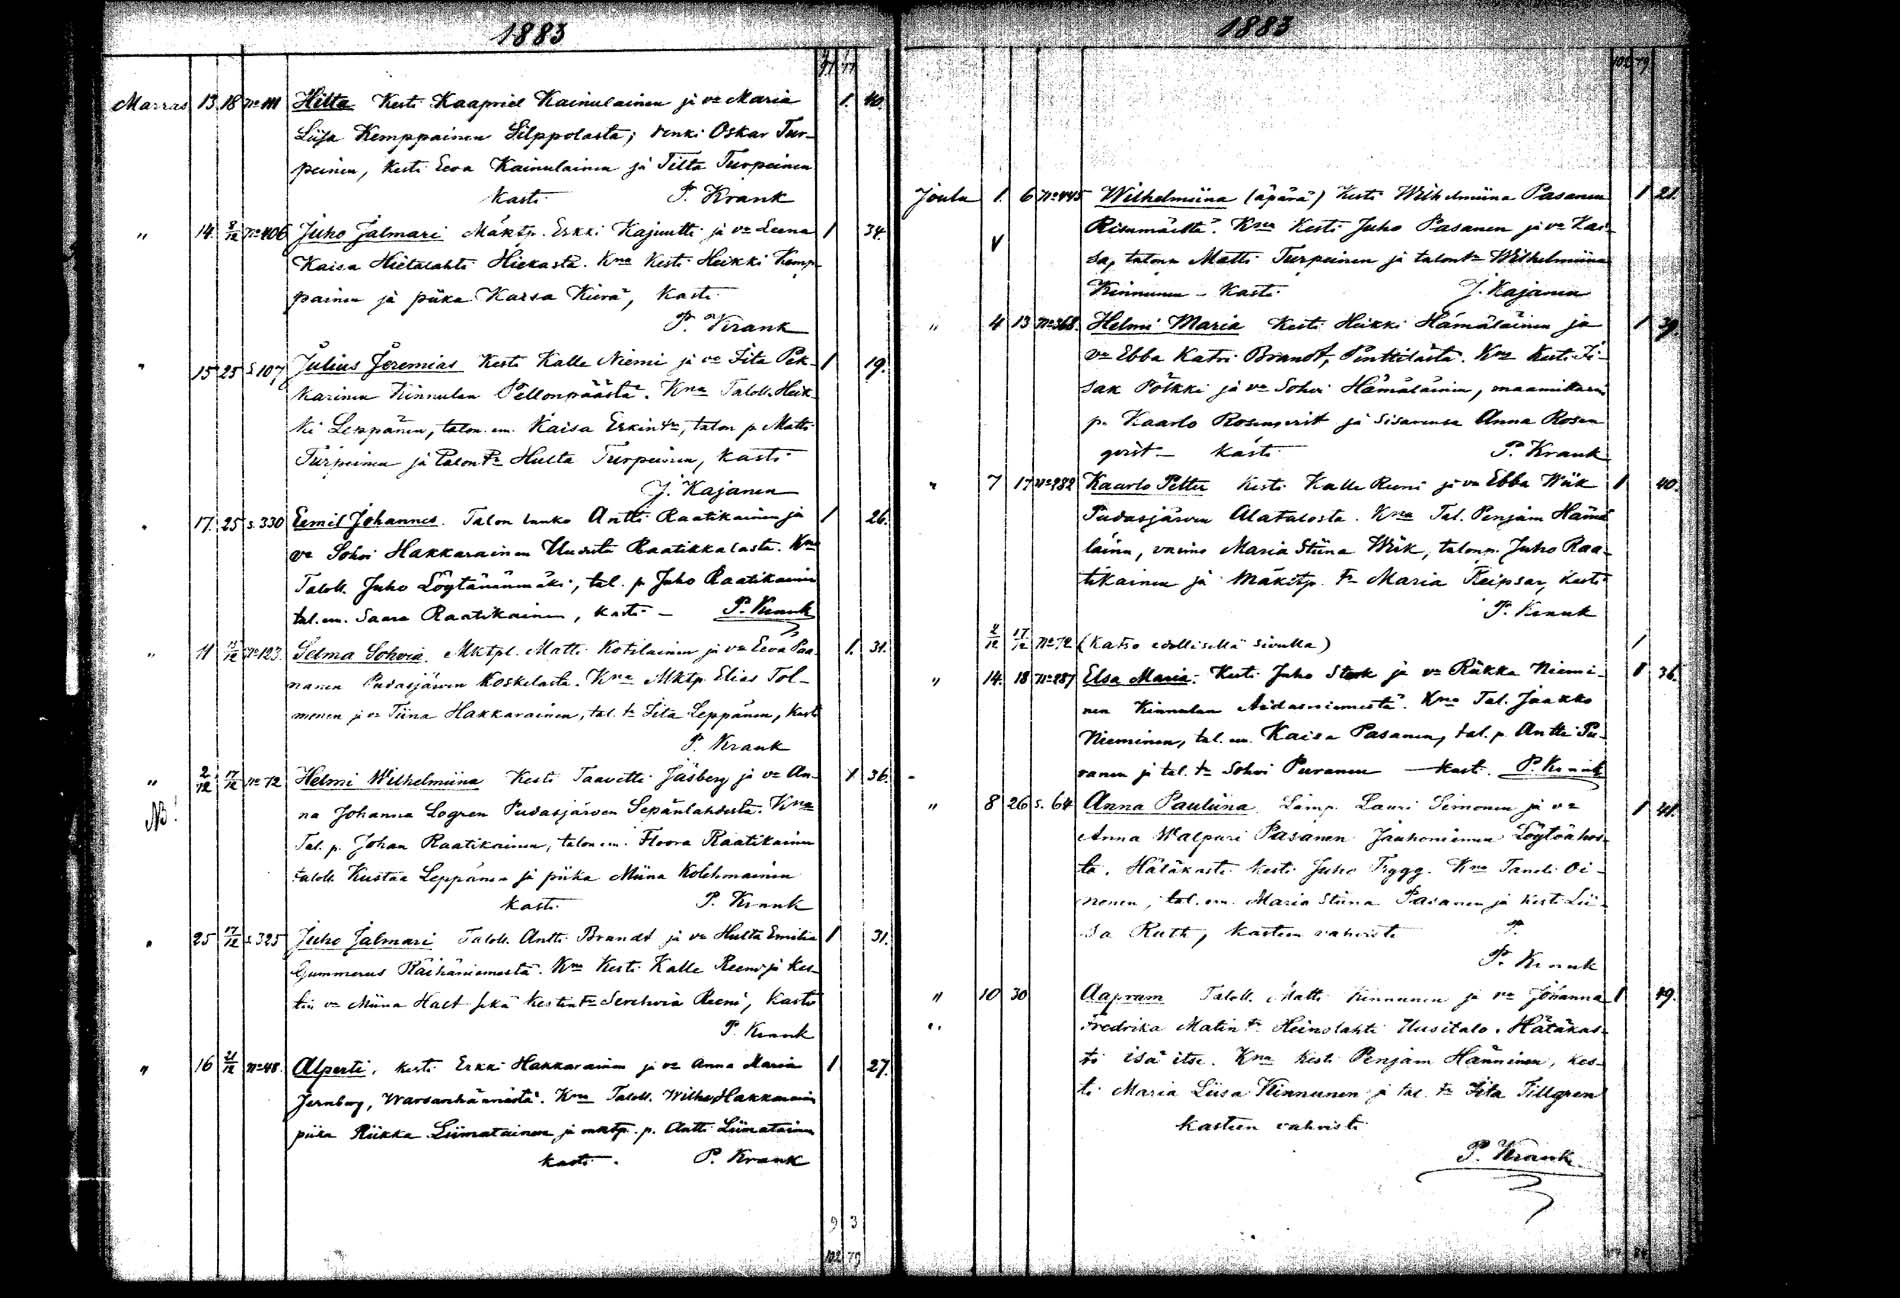 1883
Marras 13. 18 No 111 Hilta Kesti Kaapriel Kainulainen ja vo Maria 1. 40.
Liisa Kemppainen Silppolasta; renki Oskar Tur-
peinen, kesti Eeva Kainulainen ja Tilta Turpeinen
kasti P. Krank
" 14. 8/12 No 406 Juho Jalmari Mäktp. Erkki Kajuutti ja vo Leena 1 34.
Kaisa Hietalahti Hiekasta. Kna Kesti Heikki Kemp-
painen ja piika Kaisa Kiera, kasti
P. Krank
" 15 25 S. 107 Julius Jeremias Kesti Kalle Niemi ja vo Fita Pek- 1 19.
karinen Kinnulan Pellonpäästä. Kna Taloll. Heik-
ki Leppänen, talon em. Kaisa Erkintr, talon p. Matti
Turpeinen ja Talon tr Hulta Turpeinen, kasti
J. Kajanen
" 17. 25 s. 330 Eemil Johannes. Talon lanko Antti Raatikainen ja 1 26.
vo Sohvi Hakkarainen Uudesta Raatikkalasta. Kna
Taloll. Juho Löytänänmäki, tal. p Juho Raatikainen
tal. em. Saara Raatikainen, kasti – P. Krank
" 11 17/12 No 123. Selma Sohvia. Mktpl. Matti Kotilainen ja vo Eeva Paa- 1. 31.
nanen Pudasjärven Koskelasta. Kna Mktp Elias Tol-
monen ja vo Tiina Hakkarainen, tal. tr Fita Leppänen, kasti
P. Krank
" 2/12 17/12 No 72 Helmi Wilhelmiina Kesti Taavetti Jäsberg ja vo An- 1 36.
NB! na Johanna Logren Pudasjärven Sepänlahdesta. Kna
Tal. p. Johan Raatikainen, talon em. Floora Raatikainen
taloll. Kustaa Leppänen ja piika Miina Kolehmainen
kasti P. Krank
" 25 17/12 s. 325 Juho Jalmari Taloll. Antti Brandt ja vo Hulta Emilia 1 31.
Gummerus Räihäniemestä. Kna Kesti Kalle Reeni ja Kes-
tin vo Miina Halt sekä Kestin tr Serehvia Reeni, kasti
P. Krank
" 16 21/12 No 48. Alperti, kesti Erkki Hakkarainen ja vo Anna Maria 1 27.
Jernberg, Warsanhännästä. Kna Taloll. Wilhe. Hakkarainen
piika Riikka Liimatainen ja mktp. p. Antti Liimatainen
kasti. P. Krank
9 3
102 79
1883
102 79
Joulu 1. 6 No 445 Wilhelmiina (äpärä) Kesti Wilhelmiina Pasanen 1 21.
Risumäeltä. Kna Kesti Juho Pasanen ja vo Kai-
sa, talon Matti Turpeinen ja talon tr Wilhelmiina
Kinnunen – kasti J. Kajanen
" 4 13 No 368. Helmi Maria Kesti Heikki Hämäläinen ja 1 39.
vo Ebba Katri Brandt, Penttilästä. Kna Kesti I-
sak Pölkki ja vo Sohvi Hämäläinen, maamittarin
p. Kaarlo Rosenqvist ja sisarensa Anna Rosen
qvist – kasti P. Krank
" 7 17 No 282 Kaarlo Petter Kesti Kalle Reeni ja vo Ebba Wiik 1 40.
Pudasjärven Alatalosta. Kna Tal. Penjam Hämä
läinen, vaimo Maria Stiina Wiik, talon p. Juho Raa-
tikainen ja Mäkitp. tr Maria Keipsar, kasti
P. Krank
2/12 17/12 No 72 (Katso edellisellä sivulla) 1
" 14. 18 No 287 Elsa Maria. Kesti Juho Stork ja vo Riikka Niemi- 1 36.
nen Kinnulan Aidasniemestä. Kna Tal. Jaakko
Nieminen, tal. em. Kaisa Pasanen, tal. p. Antti Pu-
ranen ja tal. tr Sohvi Puranen – kast. P. Krank
" 8 26 s. 64 Anna Pauliina Lamp. Lauri Simonen ja vo 1 41.
Anna Walpuri Pasanen Jauhoniemen Löytöahos-
ta. Hätäkasti kesti Juho Trygg. Kna Taneli Oi-
nonen, tal. em. Maria Stiina Pasanen ja kesti Lii-
sa Ruth, kasteen vahvisti
P. Krank
" 10 30 Aapram Taloll. Matti Kinnunen ja vo Johanna 1 49.
Fredrika Matin tr Heinolahti Uusitalo. Hätäkas-
ti isä itse. Kna kesti Penjam Hänninen, kes-
ti Maria Liisa Kinnunen ja tal. tr Fita Tillgren
kasteen vahvisti
P. Krank